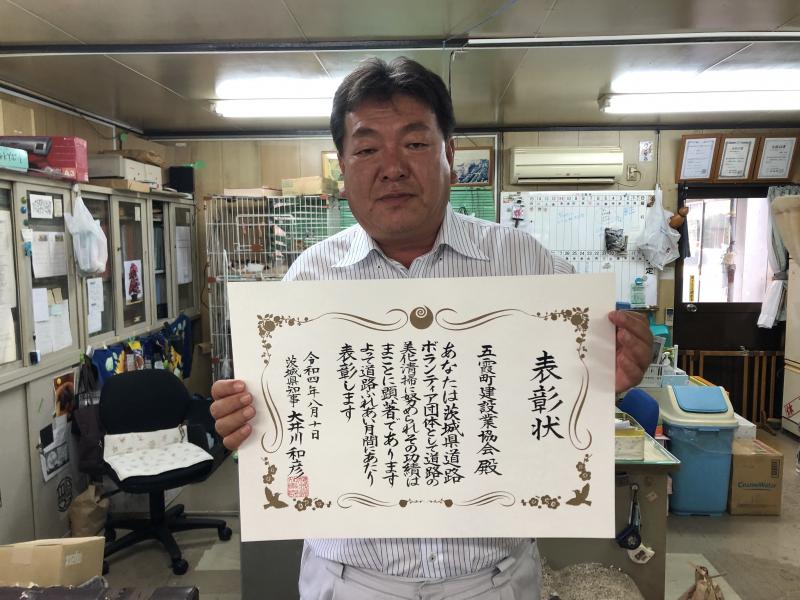 表彰状
五霞町建設業協会 殿
あなたは茨城県道路
ボランティア団体として道路の
美化清掃に努められその功績は
まことに顕著であります
よって道路ふれあい月間にあたり
表彰します
令和四年八月十日
茨城県知事 大井川 和彦